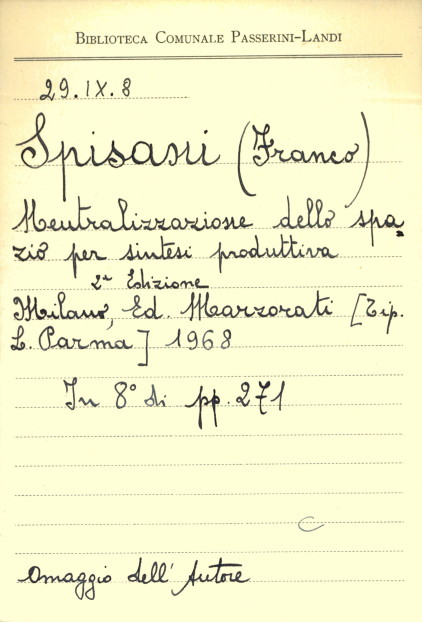 BIBLIOTECA COMUNALE PASSERINI-LANDI
29.IX.8
Spisani (Franco)
Neutralizzazione dello spa-
zio per sintesi produttiva
2ª Edizione
Milano, Ed. Marzorati [Tip.
L. Parma] 1968
In 8° di pp. 271
C
Omaggio dell' Autore